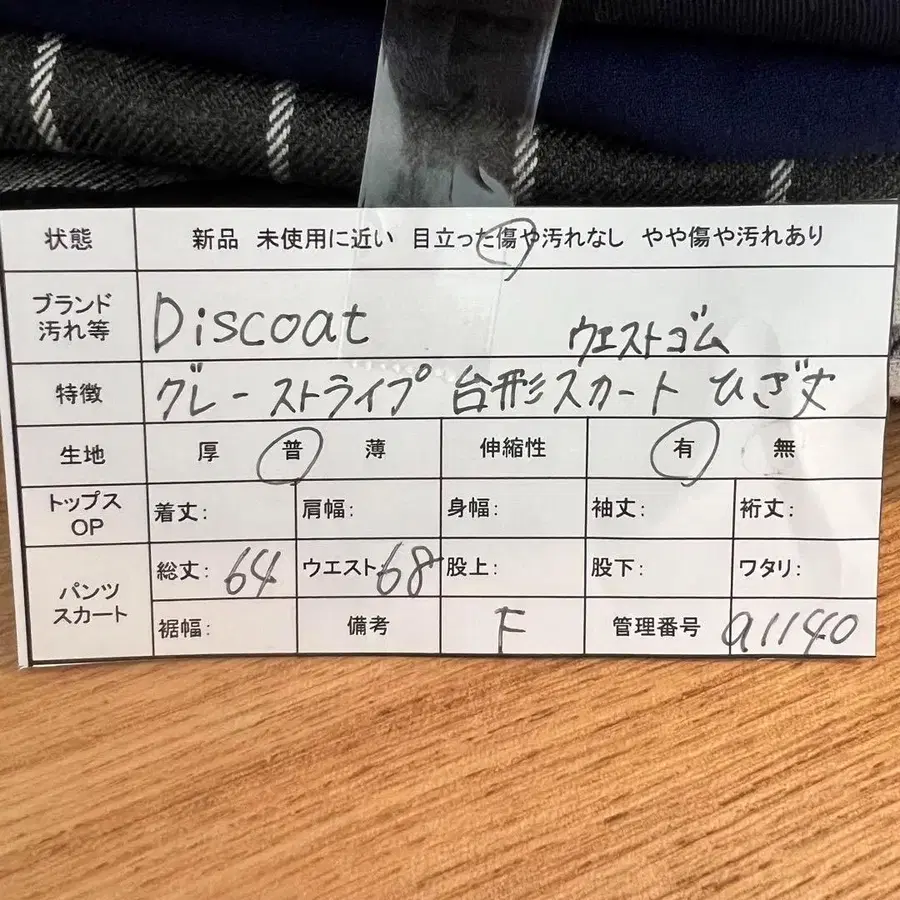 状態 新品 未使用に近い 目立った傷や汚れなし やや傷や汚れあり
ブランド
汚れ等 Discoat ウエストゴム
特徴 グレーストライプ 台形スカート ひざ丈
生地 厚 普 薄 伸縮性 有 無
トップス
OP 着丈: 肩幅: 身幅: 袖丈: 裄丈:
パンツ
スカート 総丈: 64 ウエスト: 68 股上: 股下: ワタリ:
裾幅: 備考 F 管理番号 a1140